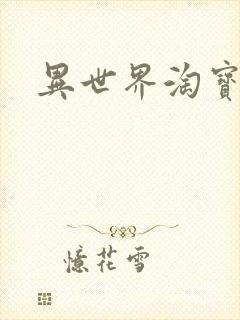 異世界淘寶
憶花雪